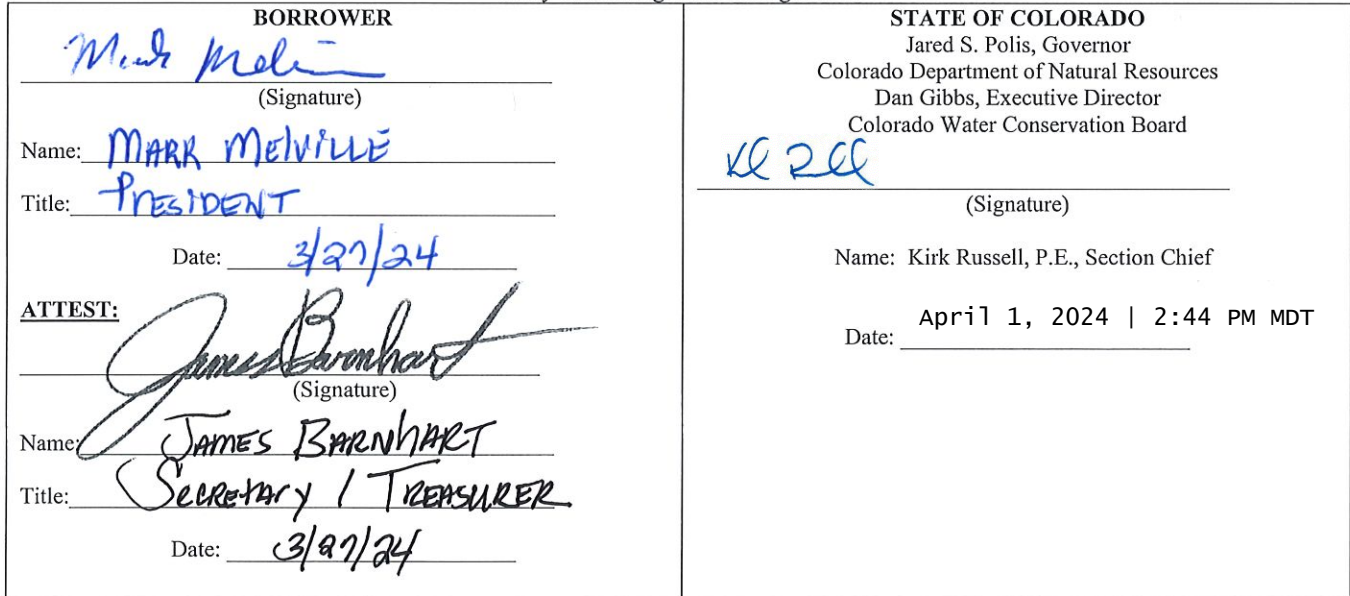 BORROWER
Mark Melville
(Signature)
Name: MARK MELVILLE
Title: PRESIDENT
Date: 3/27/24
ATTEST:
James Barnhart
(Signature)
Name: JAMES BARNHART
Title: SECRETARY / TREASURER
Date: 3/27/24
STATE OF COLORADO
Jared S. Polis, Governor
Colorado Department of Natural Resources
Dan Gibbs, Executive Director
Colorado Water Conservation Board
(Signature)
Name: Kirk Russell, P.E., Section Chief
Date: April 1, 2024 | 2:44 PM MDT